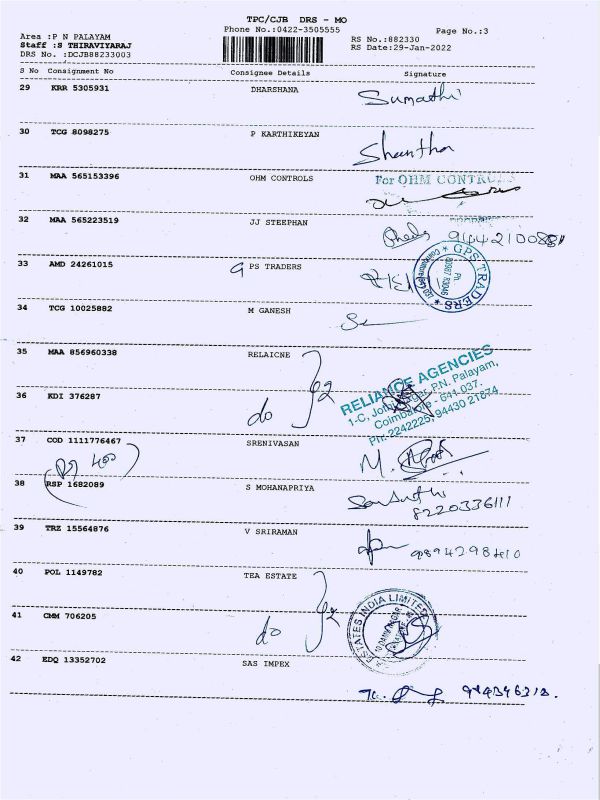 TPC/CJB DRS - MO
Phone No.:0422-3505555
Page No.:3
Area :P N PALAYAM
Staff :S THIRAVIYARAJ
DRS No. :DCJB88233003
RS No.:882330
RS Date:29-Jan-2022
S No Consignment No Consignee Details Signature
29 KRR 5305931 DHARSHANA Sumathi
30 TCG 8098275 P KARTHIKEYAN Shantha
31 MAA 565153396 OHM CONTROLS For OHM CONTROLS
32 MAA 565223519 JJ STEEPHAN
33 AMD 24261015 G PS TRADERS
GPS TRADERS
34 TCG 10025882 M GANESH
35 MAA 856960338 RELAICNE
RELIANCE AGENCIES
P.N. Palayam,
Coimbatore - 641 037.
Ph: 2242225, 94430 21674
36 KDI 376287 do
37 COD 1111776467 SRENIVASAN
38 RSP 1682089 S MOHANAPRIYA
8220336111
39 TRZ 15564876 V SRIRAMAN 9894298410
40 POL 1149782 TEA ESTATE
ESTATES INDIA LIMITED
41 CMM 706205 do
42 EDQ 13352702 SAS IMPEX